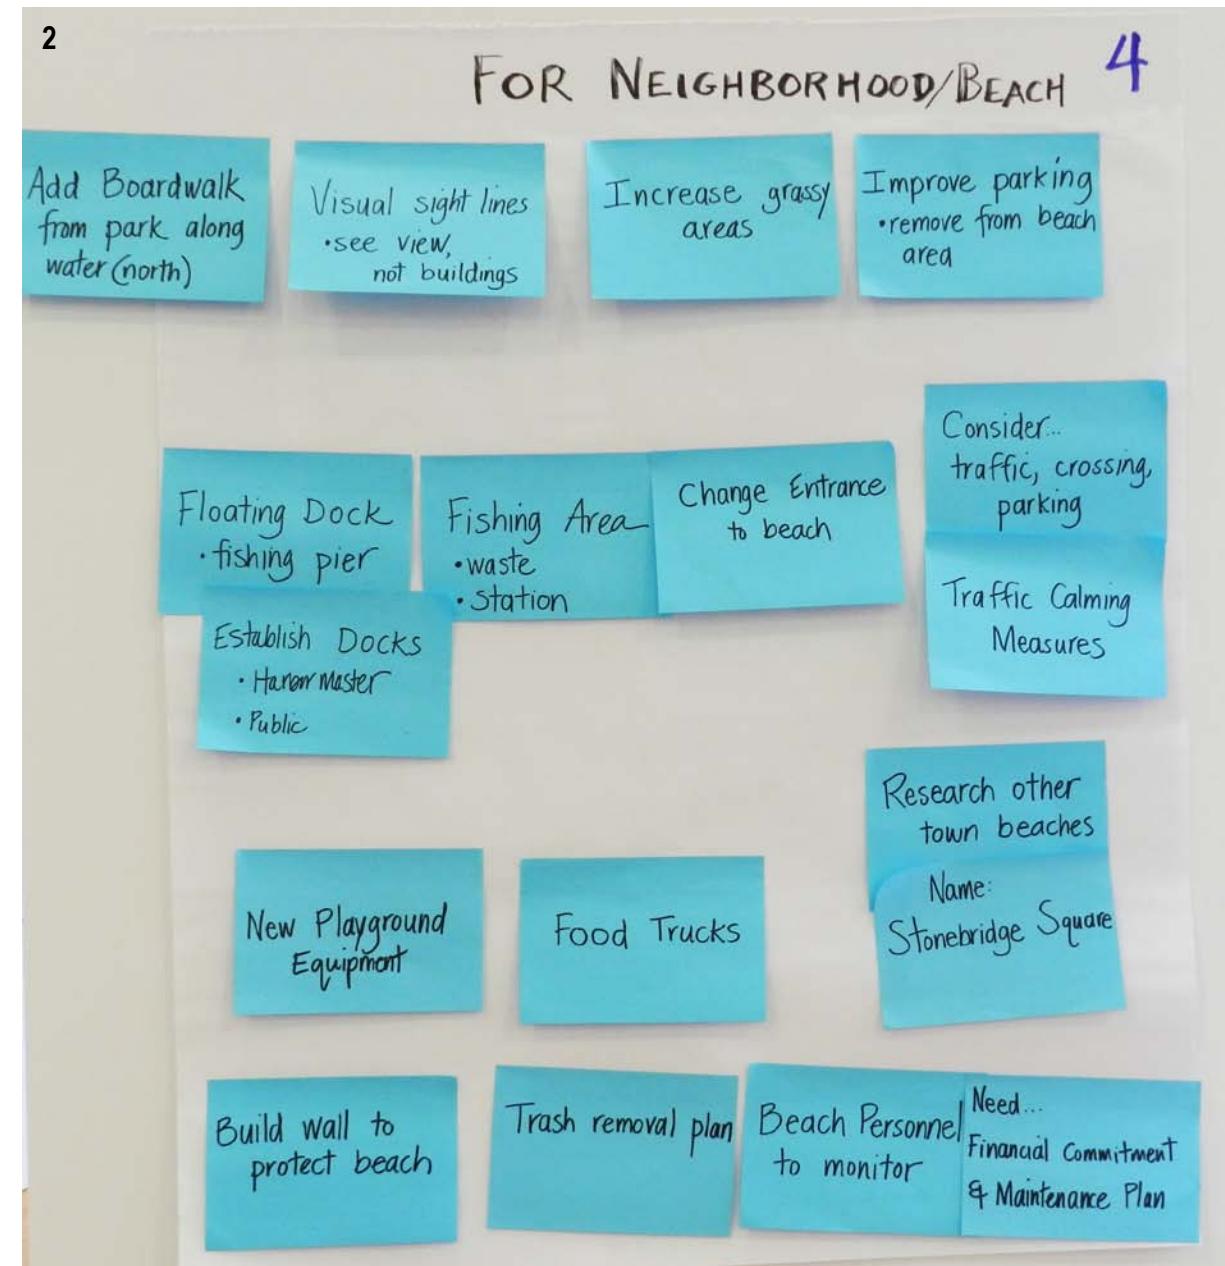 2
FOR NEIGHBORHOOD/BEACH 4
Add Boardwalk
from park along
water (north)
Visual sight lines
•see view,
not buildings
Increase grassy
areas
Improve parking
•remove from beach
area
Floating Dock
• fishing pier
Fishing Area
•waste
•Station
Change Entrance
to beach
Consider...
traffic, crossing,
parking
Traffic Calming
Measures
Establish Docks
• Master
• Public
Research other
town beaches
Name:
Stonebridge Square
New Playground
Equipment
Food Trucks
Build wall to
protect beach
Trash removal plan
Beach Personnel
to monitor
Need...
Financial Commitment
& Maintenance Plan